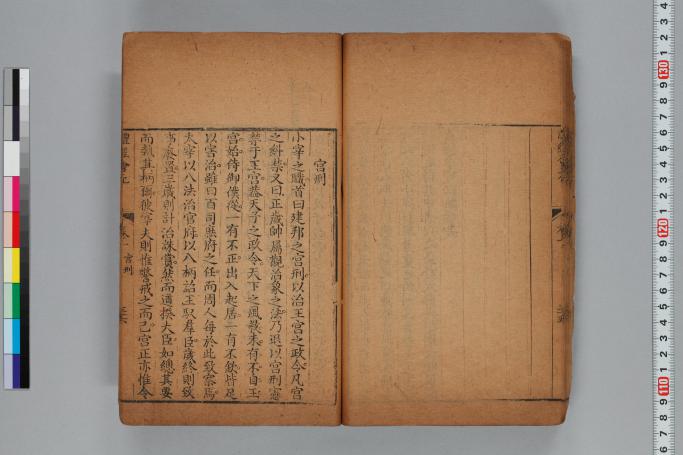 宫刑
小宰之職首曰建邦之宫刑以治王宫之政令凡宫
之糾禁又曰正歳帥屬觀治象之法乃退以宫刑憲
禁于王宫蓋天子之政令天下之風教未有不自王
宫始侍御僕從一有不正出入起居一有不欽皆足
以害治雖曰百司庶府之任而周人每於此致察焉
大宰以八法治官府以八柄詔王馭羣臣歳終則致
事廢置三歳則計治誅賞然而道揆大臣如總其要
而執其柄爾彼宰夫則惟警戒之而已宫正亦惟令
禮經會元
卷一
宫刑